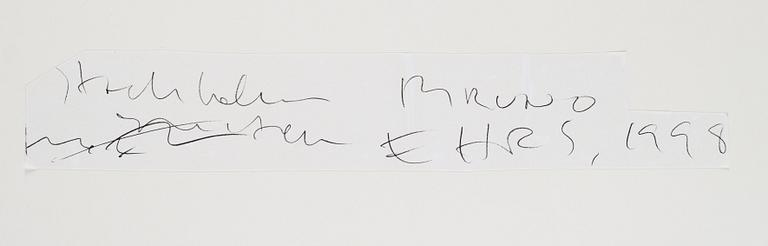 Stockholm BRUNO
EHRS, 1998